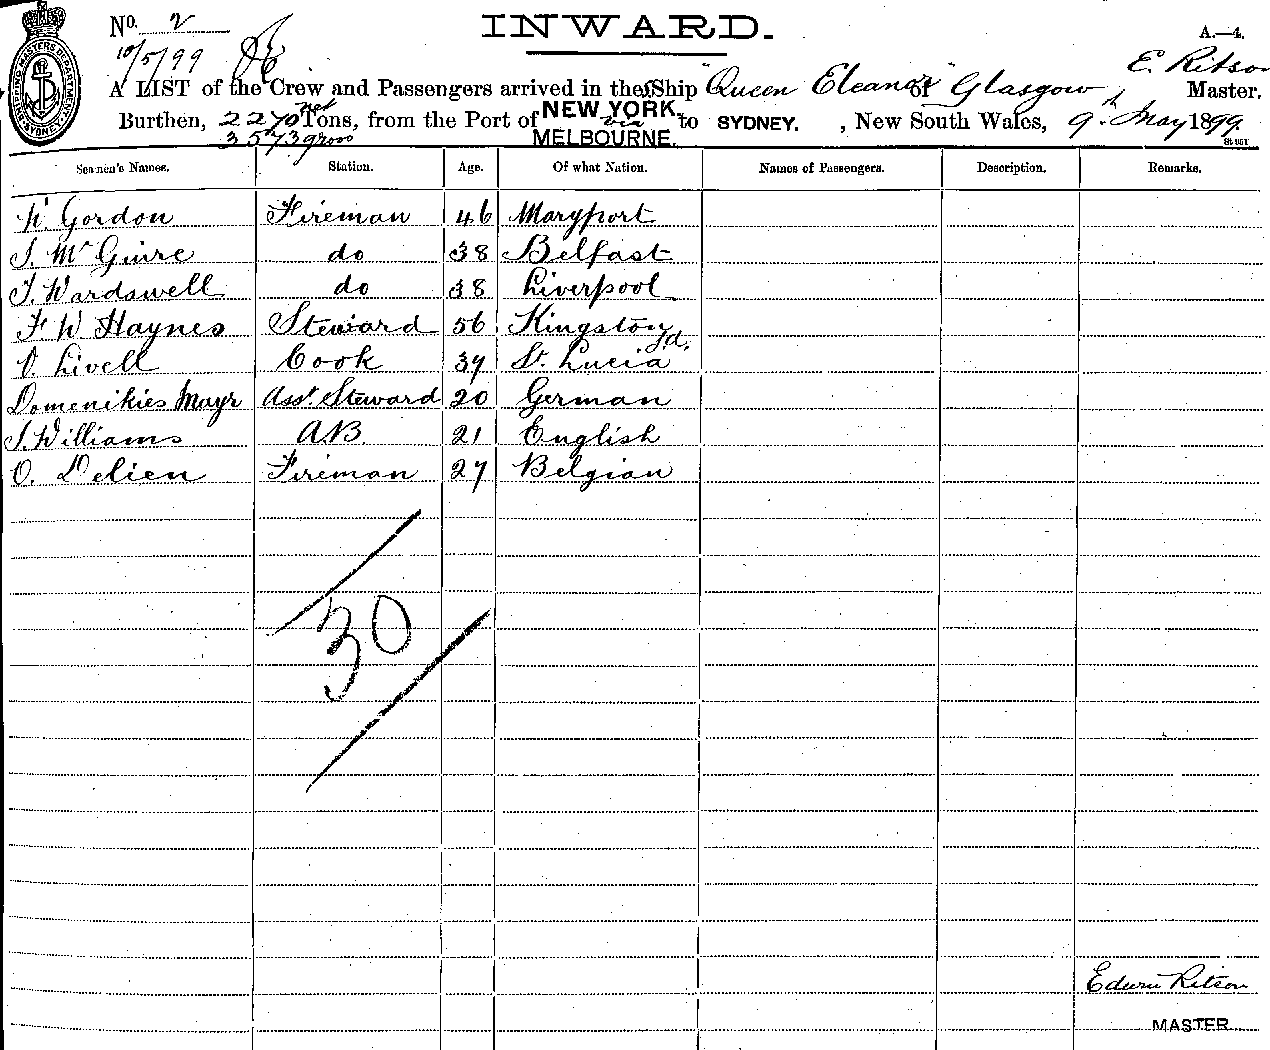 No. 2
INWARD.
A.—4.
10/5/99
E. Ritson
A LIST of the Crew and Passengers arrived in the SShip "Queen Eleanor" of Glasgow, Master,
Burthen, 2270 net Tons, from the Port of NEW YORK via to SYDNEY. , New South Wales, 9th May 1899.
3573 gross
MELBOURNE.
Seamen's Names. Station. Age. Of what Nation. Names of Passengers. Description. Remarks.
W. Gordon Fireman 46 Maryport
J. McGuire do 38 Belfast
J. Wardswell do 38 Liverpool
F W Haynes Steward 56 Kingston Ja.
O. Livell Cook 39 St. Lucia
Domenikies Mayr Asst. Steward 20 German
J. Williams A.B. 21 English
O. Delien Fireman 27 Belgian
30
Edwin Ritson
MASTER